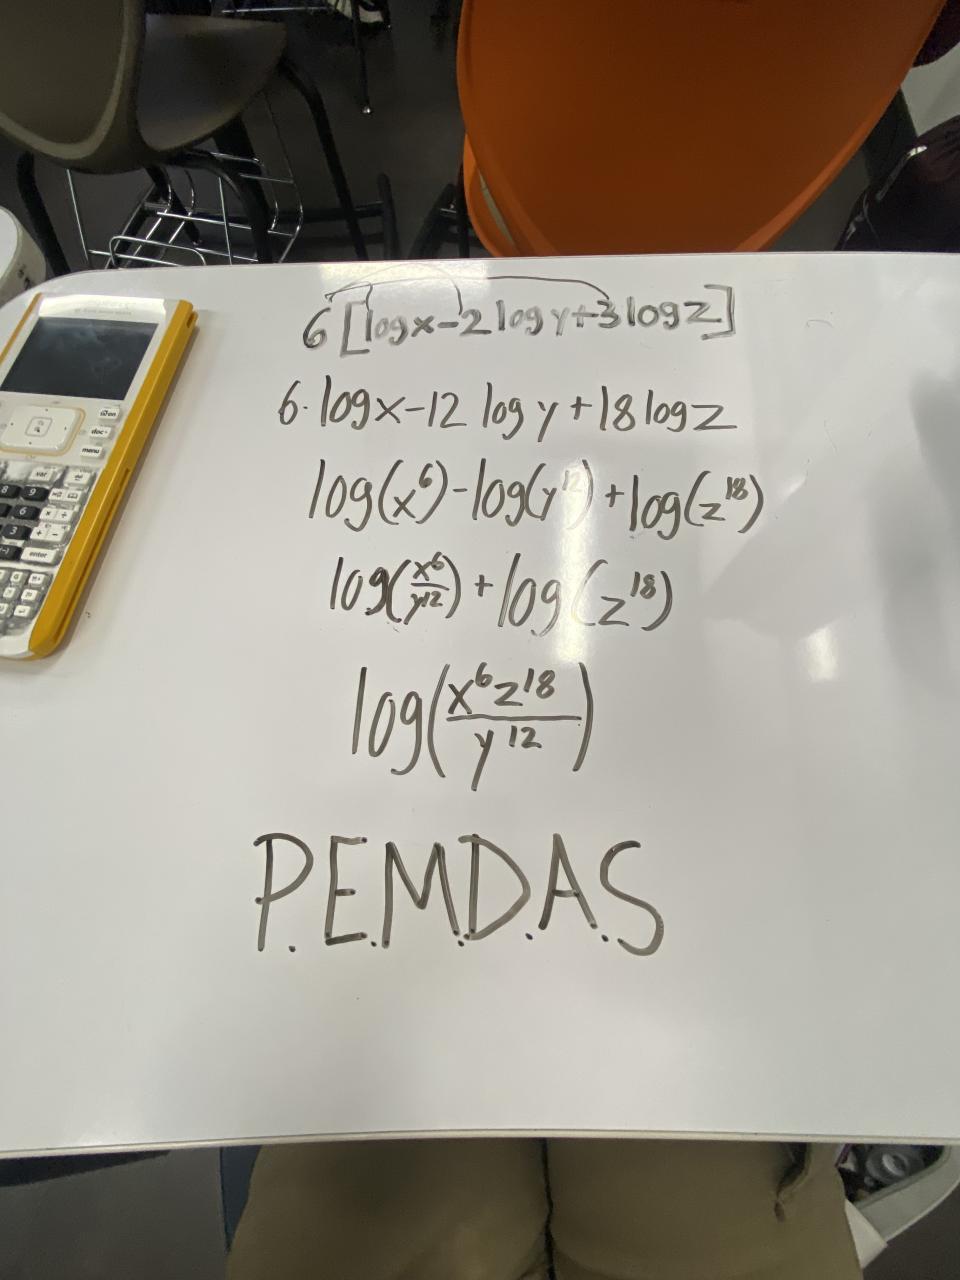 6[logx-2logy+3logz]
6·logx-12 log y+18logz
log(x⁶)-log(y¹²)+log(z¹⁸)
log(x⁶/y¹²)+log(z¹⁸)
log(x⁶z¹⁸/y¹²)
P.E.M.D.A.S
esc on
doc
menu
var
8 9
6
3
(-)
enter